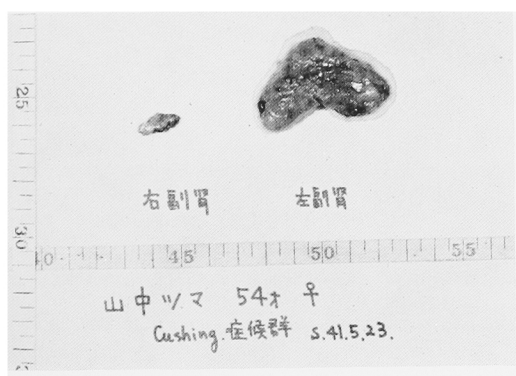 25
右副腎 左副腎
30
40 45 50 55
山中ツマ 54才 ♀
Cushing.症候群 S.41.5.23.